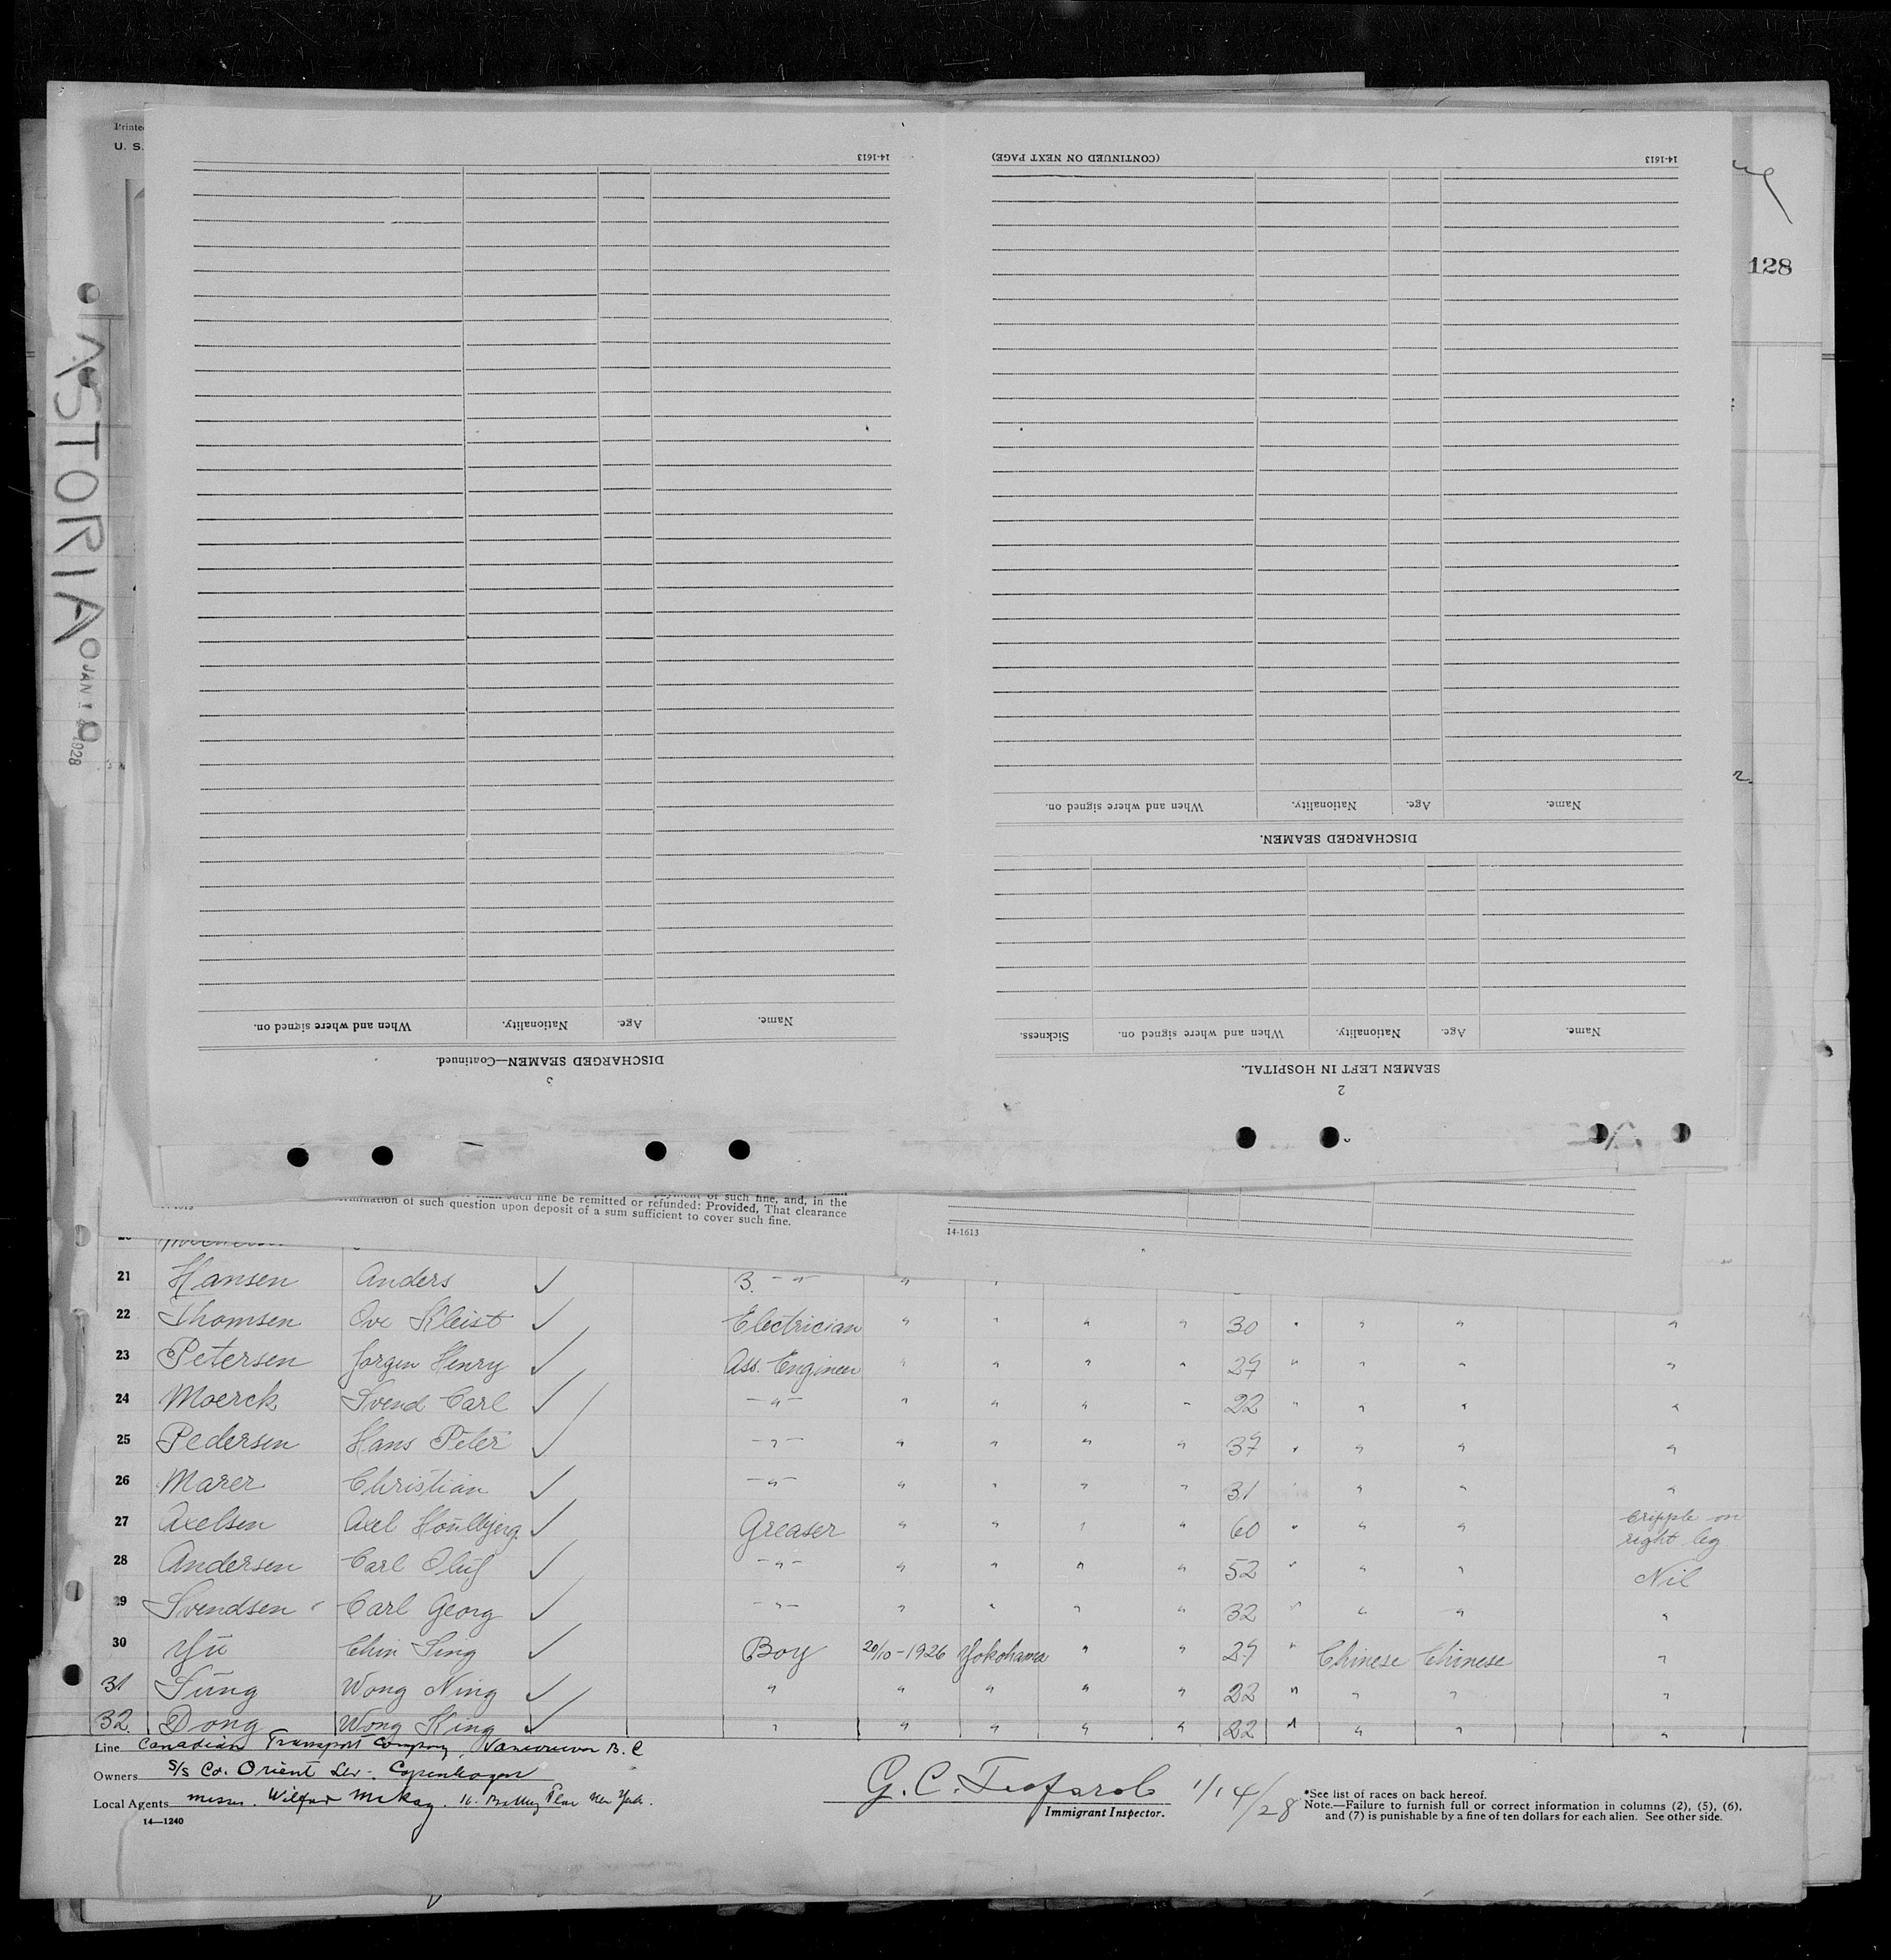 Printed
U. S.
128
ASTORIA
JAN 1
1928
14-1613
14-1613
(CONTINUED ON NEXT PAGE)
Name. Age. Nationality. When and where signed on.
DISCHARGED SEAMEN.
Name. Age. Nationality. When and where signed on. Sickness.
SEAMEN LEFT IN HOSPITAL.
2
Name. Age. Nationality. When and where signed on.
DISCHARGED SEAMEN—Continued.
3
such fine be remitted or refunded: Provided, That clearance
of such question upon deposit of a sum sufficient to cover such fine.
payment of such fine, and, in the
14-1613
21 Hansen Anders ✓ B. -"- " "
22 Thomsen Ove Kleist ✓ Electrician " " " " 30 " " " "
23 Petersen Jorgen Henry ✓ Ass. Engineer " " " " 27 " " " "
24 Moerck Svend Carl ✓ -"- " " " " 22 " " " "
25 Pedersen Hans Peter ✓ -"- " " " " 37 " " " "
26 Marer Christian ✓ -"- " " " " 31 " " " "
27 Axelsen Axel ✓ Greaser " " " " 60 " " " cripple on right leg
28 Andersen Carl Oluf ✓ -"- " " " " 52 " " " Nil
29 Svendsen Carl Georg ✓ -"- " " " " 32 " " " "
30 Yü Chin Sing ✓ Boy 20/10-1926 Yokohama " " 27 " Chinese Chinese "
31 Süng Wong Ning ✓ " " " " " 22 " " " "
32. Dong Wong King ✓ " " " " " 22 " " " "
Line Canadian Transport Company, Vancouver B. C
Owners S/s Co. Orient Ltr. Copenhagen
Local Agents Messrs. Wilfred McKay. 16. Battery Place New York.
14—1240
G. C. 1/14/28
Immigrant Inspector.
*See list of races on back hereof.
Note.—Failure to furnish full or correct information in columns (2), (5), (6),
and (7) is punishable by a fine of ten dollars for each alien. See other side.